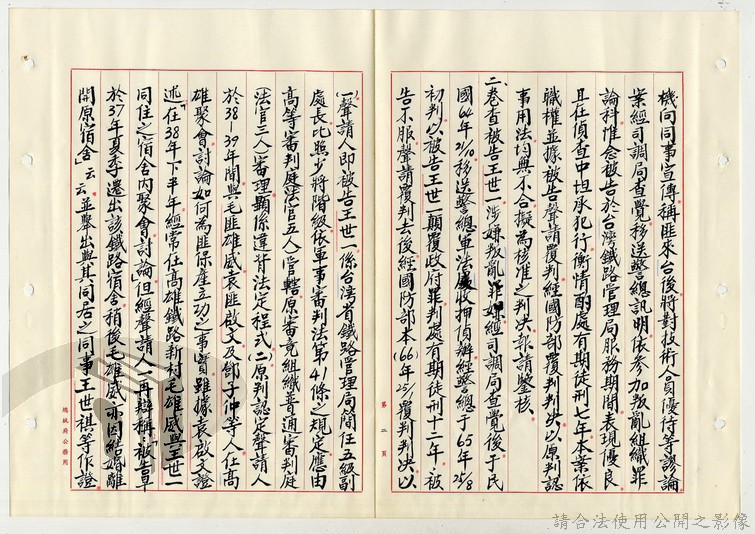 機向同事宣傳稱匪來台後將對技術人員優待等謬論
案經司調局查覺移送警總訊明依參加叛亂組織罪
論科惟念被告於台灣鐵路管理局服務期間表現優良
且在偵查中坦承犯行衡情酌處有期徒刑七年本案依
職權並據被告聲請覆判經國防部覆判判決以原判認
事用法均無不合擬為核准之判決報請鑒核、
二、卷查被告王世一涉嫌叛亂罪嫌經司調局查覺後于民
國64年21/10移送警總軍法處收押偵辦經警總于65年25/8
初判以被告王世一顛覆政府罪判處有期徒刑十二年、被
告不服聲請覆判去後經國防部本(66)年25/1覆判判決以
(一)聲請人即被告王世一係台湾省鐵路管理局簡任五級副
處長比照少將階級依軍事審判法第41條之規定應由
高等審判庭法官五人管轄原審竟組織普通審判庭
法官三人審理顯係違背法定程式(二)原判認定聲請人
於38-39年間與毛匪雄威袁匪啟文及郃子仲等人在高
雄聚會討論如何為匪保產立功之事實雖據袁啟文證
述「在38年下半年經常在高雄鐵路新村毛雄威與王世一
同住之宿舍內聚會討論但經聲請人一再辯稱:「被告早
於37年夏季遷出該鐵路宿舍稍後毛雄威亦因結婚離
開原宿舍」云云並舉出與其同居之同事王世祺等作證
第二頁
總統府公務用
請合法使用公開之影像